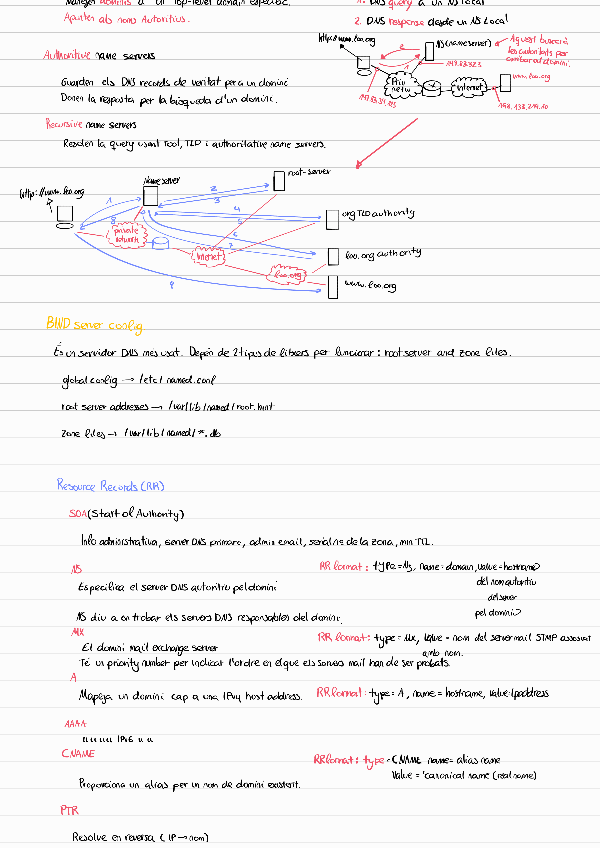 Manejen dominis a un Top-level domain específic.
Apunten als noms Autoritius.
1. DNS query a un NS Local
2. DNS response desde un NS Local
http://www.foo.org
NS (nameserver)
Aquest buscarà
les autoritats per
trobar el domini.
Priv
netw
Internet
www.foo.org
Authoritive name servers
Guarden els DNS records de veritat per a un domini
Donen la resposta per la búsqueda d'un domini.
Recursive name servers
Resolen la query usant root, TLD i authoritative name servers.
http://www.foo.org
Nameserver
root-server
org TLD authority
foo.org authority
www.foo.org
private
network
Internet
foo.org
1
2
3
4
6
7
8
9
BIND server config
És un servidor DNS mes usat. Depèn de 2 tipus de fitxers per funcionar: root server and zone files.
global config → /etc/named.conf
root server addresses → /var/lib/named/root.hint
zone files → /var/lib/named/*.db
Resource Records (RR)
SOA (Start of Authority)
Info administrativa, server DNS primari, admin email, serial nr de la zona, min TTL.
NS
RR format: type=NS, name=domain, value=hostname
Especifica el server DNS autoritiu pel domini
del nom autoritiu
del server
pel domini
NS diu a on trobar els servers DNS responsables del domini.
MX
El domini mail exchange server
RR format: type = MX, Value = nom del server mail STMP associat
amb nom.
Té un priority number per indicar l'ordre en el que els servers mail han de ser probats.
A
Mapeja un domini cap a una IPv4 host address.
RR format: type = A, name = hostname, value: ip address
AAAA
" " " " IPv6 " "
CNAME
RR format: type = CNAME name = alias name
Value = canonical name (real name)
Proporciona un alias per un nom de domini existent.
PTR
Resolve en reversa (IP → nom)